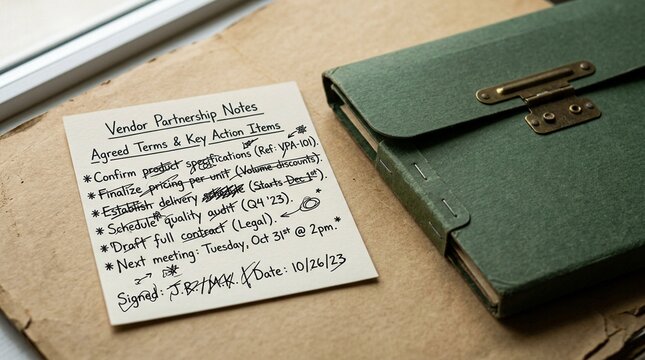 Vendor Partnership Notes
Agreed Terms & Key Action Items
* Confirm product specifications (Ref: VPA-101).
* Finalize pricing per unit (Volume discounts).
* Establish delivery (Starts Dec 1st).
* Schedule quality audit (Q4 '23).
* Draft full contract (Legal).
* Next meeting: Tuesday, Oct 31st @ 2pm.*
Signed: Date: 10/26/23